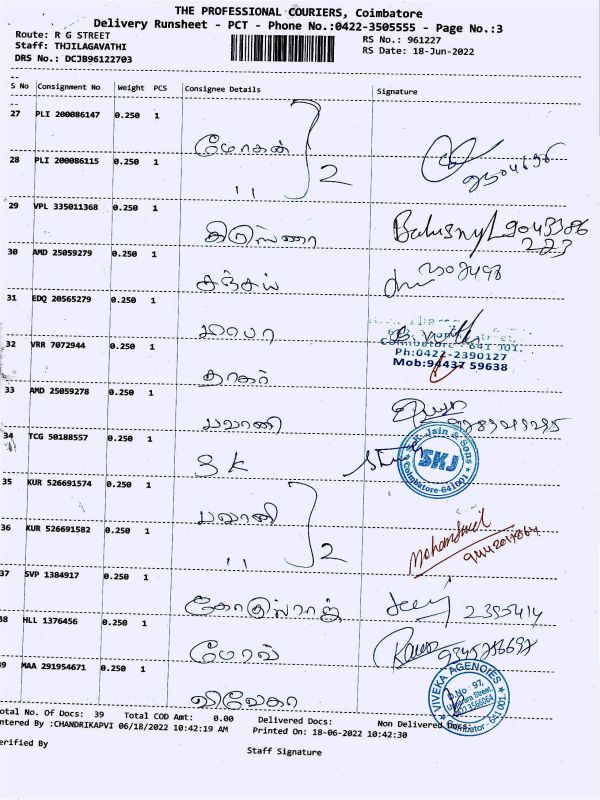 THE PROFESSIONAL COURIERS, Coimbatore
Delivery Runsheet - PCT - Phone No.:0422-3505555 - Page No.:3
Route: R G STREET RS No.: 961227
Staff: THJILAGAVATHI RS Date: 18-Jun-2022
DRS No.: DCJB96122703
S No Consignment No Weight PCS Consignee Details Signature
27 PLI 200086147 0.250 1
மோகன்
28 PLI 200086115 0.250 1
,, 2
29 VPL 335011368 0.250 1
30 AMD 25059279 0.250 1
சஞ்சய்
31 EDQ 20565279 0.250 1
Coimbatore - 641 001.
32 VRR 7072944 0.250 1
Ph:0422-2390127
Mob:94437 59638
தாகர்
33 AMD 25059278 0.250 1
பவானி
34 TCG 50188557 0.250 1
S K
S.K. Jain & Sons SKJ Coimbatore-641001
35 KUR 526691574 0.250 1
பவானி
36 KUR 526691582 0.250 1
,, 2
37 SVP 1384917 0.250 1
38 HLL 1376456 0.250 1
போஸ்
39 MAA 291954671 0.250 1
விவேகா
VIVEKA AGENCIES D.No: 97, Street, Coimbatore - 641 001
Total No. Of Docs: 39 Total COD Amt: 0.00 Delivered Docs: Non Delivered Docs:
ntered By :CHANDRIKAPVI 06/18/2022 10:42:19 AM Printed On: 18-06-2022 10:42:30
erified By
Staff Signature